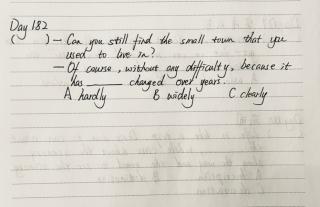 Day 182
( ) – Can you still find the small town that you
used to live in?
– Of course, without any difficulty, because it
has ______ changed over years.
A hardly B widely C clearly